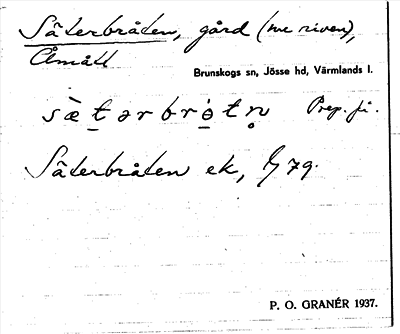 Säterbråten, gård (nu riven),
Åmått
Brunskogs sn, Jösse hd, Värmlands l.
sætərbrotn̥ Prep. på.
Säterbråten ek, 79.
P. O. GRANÉR 1937.